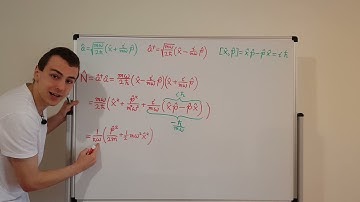 â = √(mω/2ħ) (x̂ + i/mω p̂)   â† = √(mω/2ħ) (x̂ - i/mω p̂)   [x̂, p̂] = x̂p̂ - p̂x̂ = iħ
N̂ = â†â = mω/2ħ (x̂ - i/mω p̂)(x̂ + i/mω p̂)
iħ
= mω/2ħ (x̂² + p̂²/m²ω² + i/mω (x̂p̂ - p̂x̂))
-ħ/mω
= 1/ħω (p̂²/2m + 1/2 mω²x̂²)